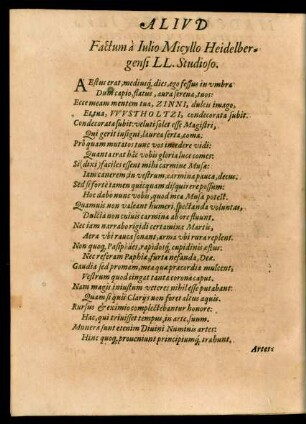 ALIVD
Factum à Iulio Micyllo Heidelber-
gensi LL. Studioso.
AEstus erat, mediusq́; dies, ego fessus in vmbra
Dum capio flatus, aura serena, tuos:
Ecce meam mentem tua, ZINNI, dulcis imago,
Et tua, VVVSTHOLTZI, condecorata subit.
Condecorata subit: veluti solet esse Magistri,
Qui gerit insigni, laurea serta, coma.
Prò quam mutatos tunc vos in ædere vidi:
Quanta erat hæc vobis gloria luce comes:
Si, dixi, faciles essent mihi carmine Musæ:
Iam canerem, in vestrum, carmina pauca, decus.
Sed si fortè tamen quicquam disquirere possum:
Hoc dabo nunc vobis, quod mea Musa potest.
Quamuis non valeant humeri, spectanda voluntas,
Dulcia non cuiuis carmina ab ore fluunt.
Nec iam narrabo rigidi certamina Martis,
Aera vbi rauca sonant, arma vbi rura replent.
Non quoq́; Pasiphäes, rapidosq́; cupidinis æstus:
Nec referam Paphiæ, furta nefanda, Deæ.
Gaudia sed promam, mea quæ præcordia mulcent,
Vestrum quod cingat tanta corona caput.
Nam magis iniustum veteres nihil esse putabant:
Quam si quis Clarijs non foret altus aquis.
Rursus & eximio complectebantur honore:
Hac, qui triuisset tempus, in arte, suum.
Munera sunt etenim Diuini Numinis artes:
Hinc quoq́; proueniunt principiumq́; trahunt.
Artes